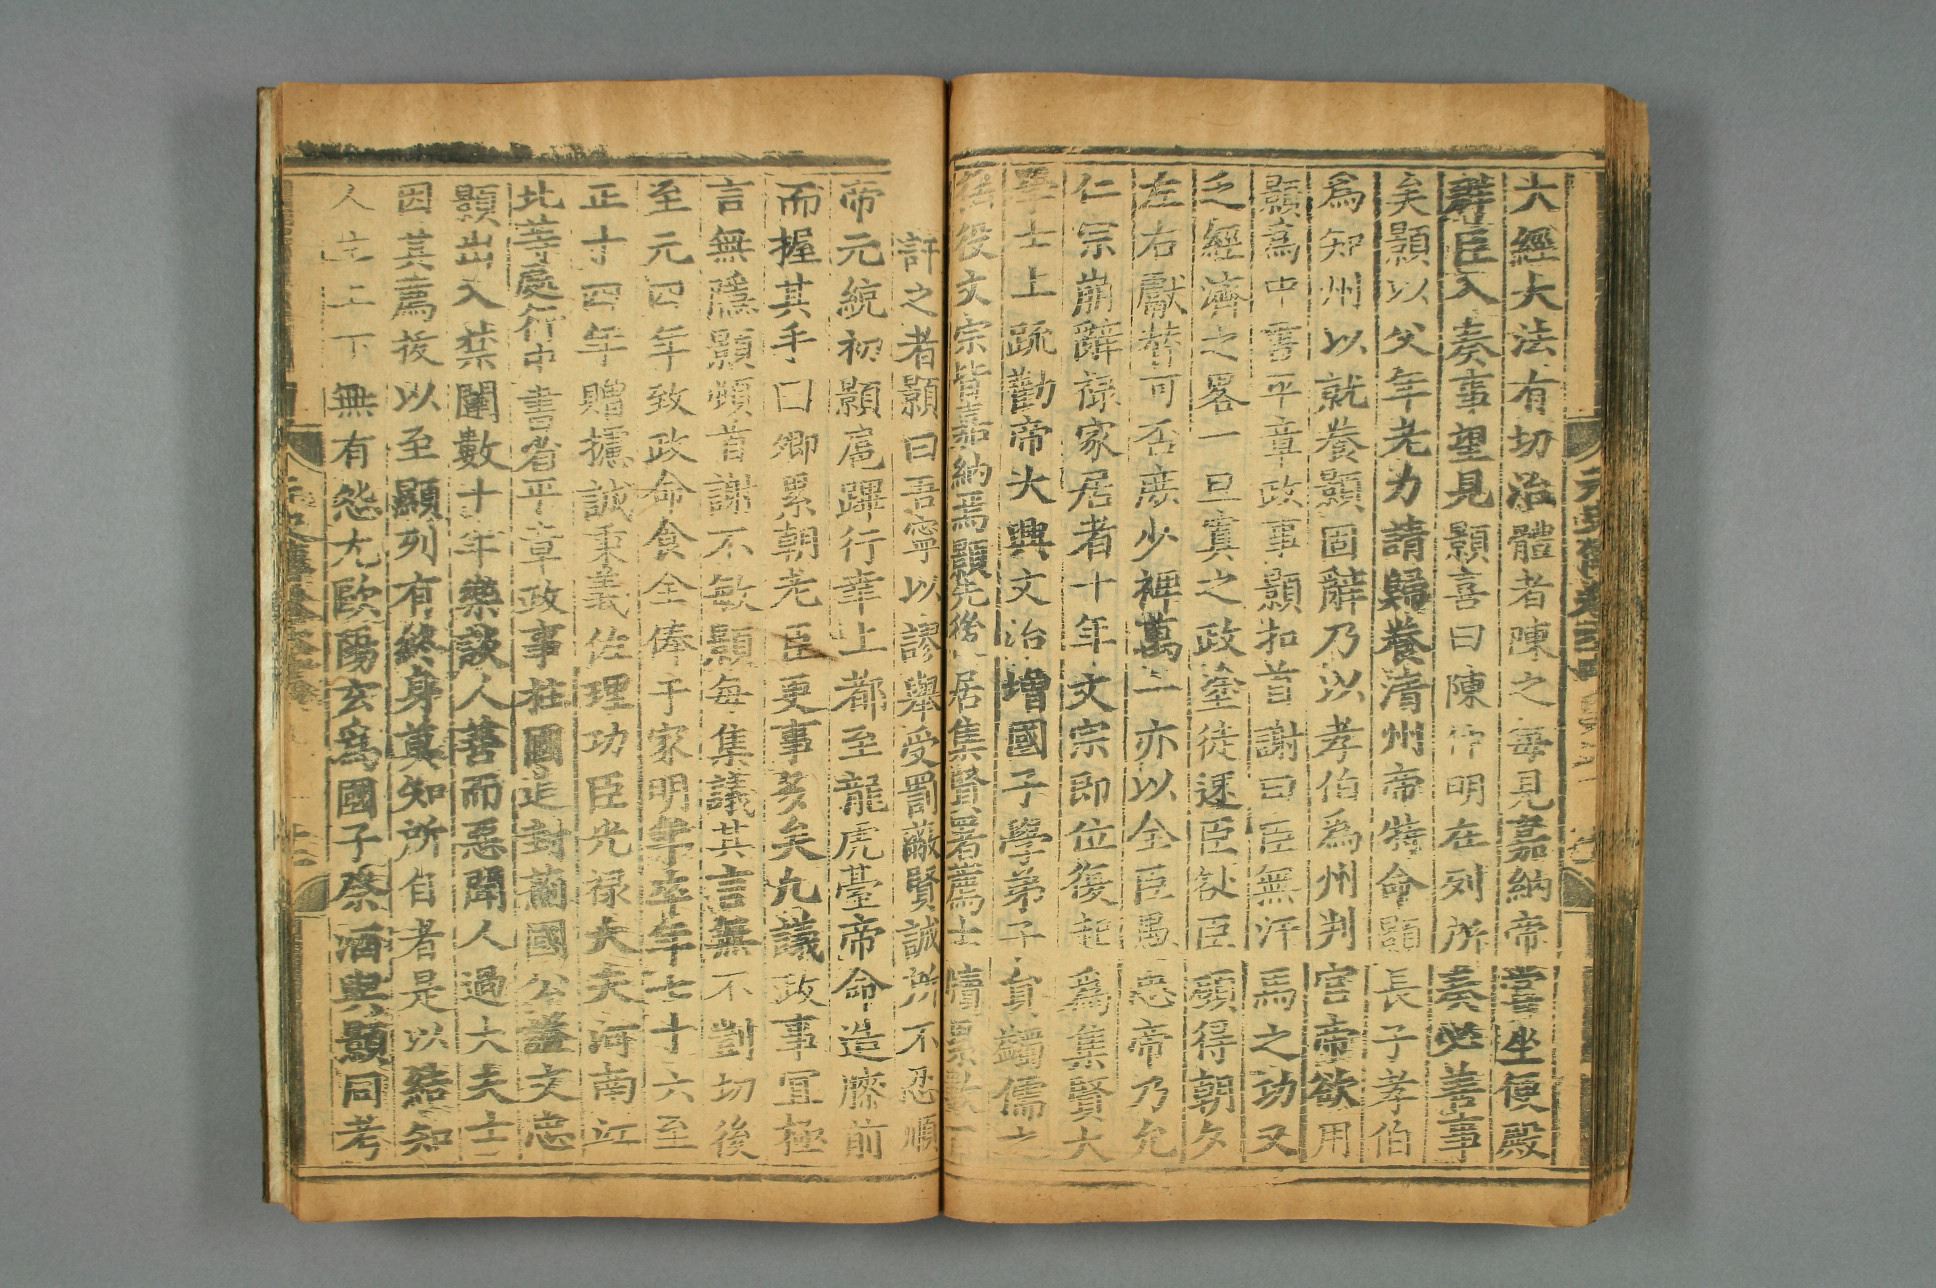 六經大法有切治體者陳之每見嘉納帝嘗坐便殿
群臣入奏事望見顥喜曰陳仲明在列所奏必善事
矣顥以父年老力請歸養清州帝特命顥長子孝伯
爲知州以就養顥固辭乃以孝伯爲州判官帝欲用
顥爲中書平章政事顥扣首謝曰臣無汗馬之功又
乏經濟之畧一旦寘之政塗徒速臣咎臣願得朝夕
左右獻替可否庶少裨萬一亦以全臣愚忠帝乃允
仁宗崩辭祿家居者十年文宗即位復起爲集賢大
學士上疏勸帝大興文治增國子學弟子員蠲儒之
徭役文宗皆嘉納焉顥先後居集賢署薦士牘累數百
訐之者顥曰吾寧以謬舉受罰蔽賢誠所不忍順
帝元統初顥扈蹕行幸上都至龍虎臺帝命造膝前
而握其手曰卿累朝老臣更事多矣凡議政事宜極
言無隱顥頓首謝不敏顥每集議其言無不剴切後
至元四年致政命食全俸于家明年卒年七十六至
正十四年贈攄誠秉義佐理功臣光禄大夫河南江
北等處行中書省平章政事柱國追封薊國公謚文忠
顥出入禁闥數十年樂談人善而惡聞人過大夫士
因其薦拔以至顯列有終身莫知所自者是以結知
人主上下無有怨尤歐陽玄爲國子祭酒與顥同考